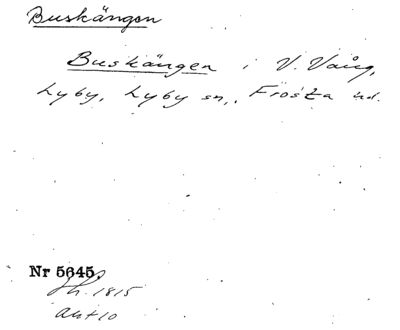 Buskängen
Buskängen i V. Vång,
Lyby, Lyby sn, Frosta hd.
Nr 5645.
Sk. 1815
akt 10